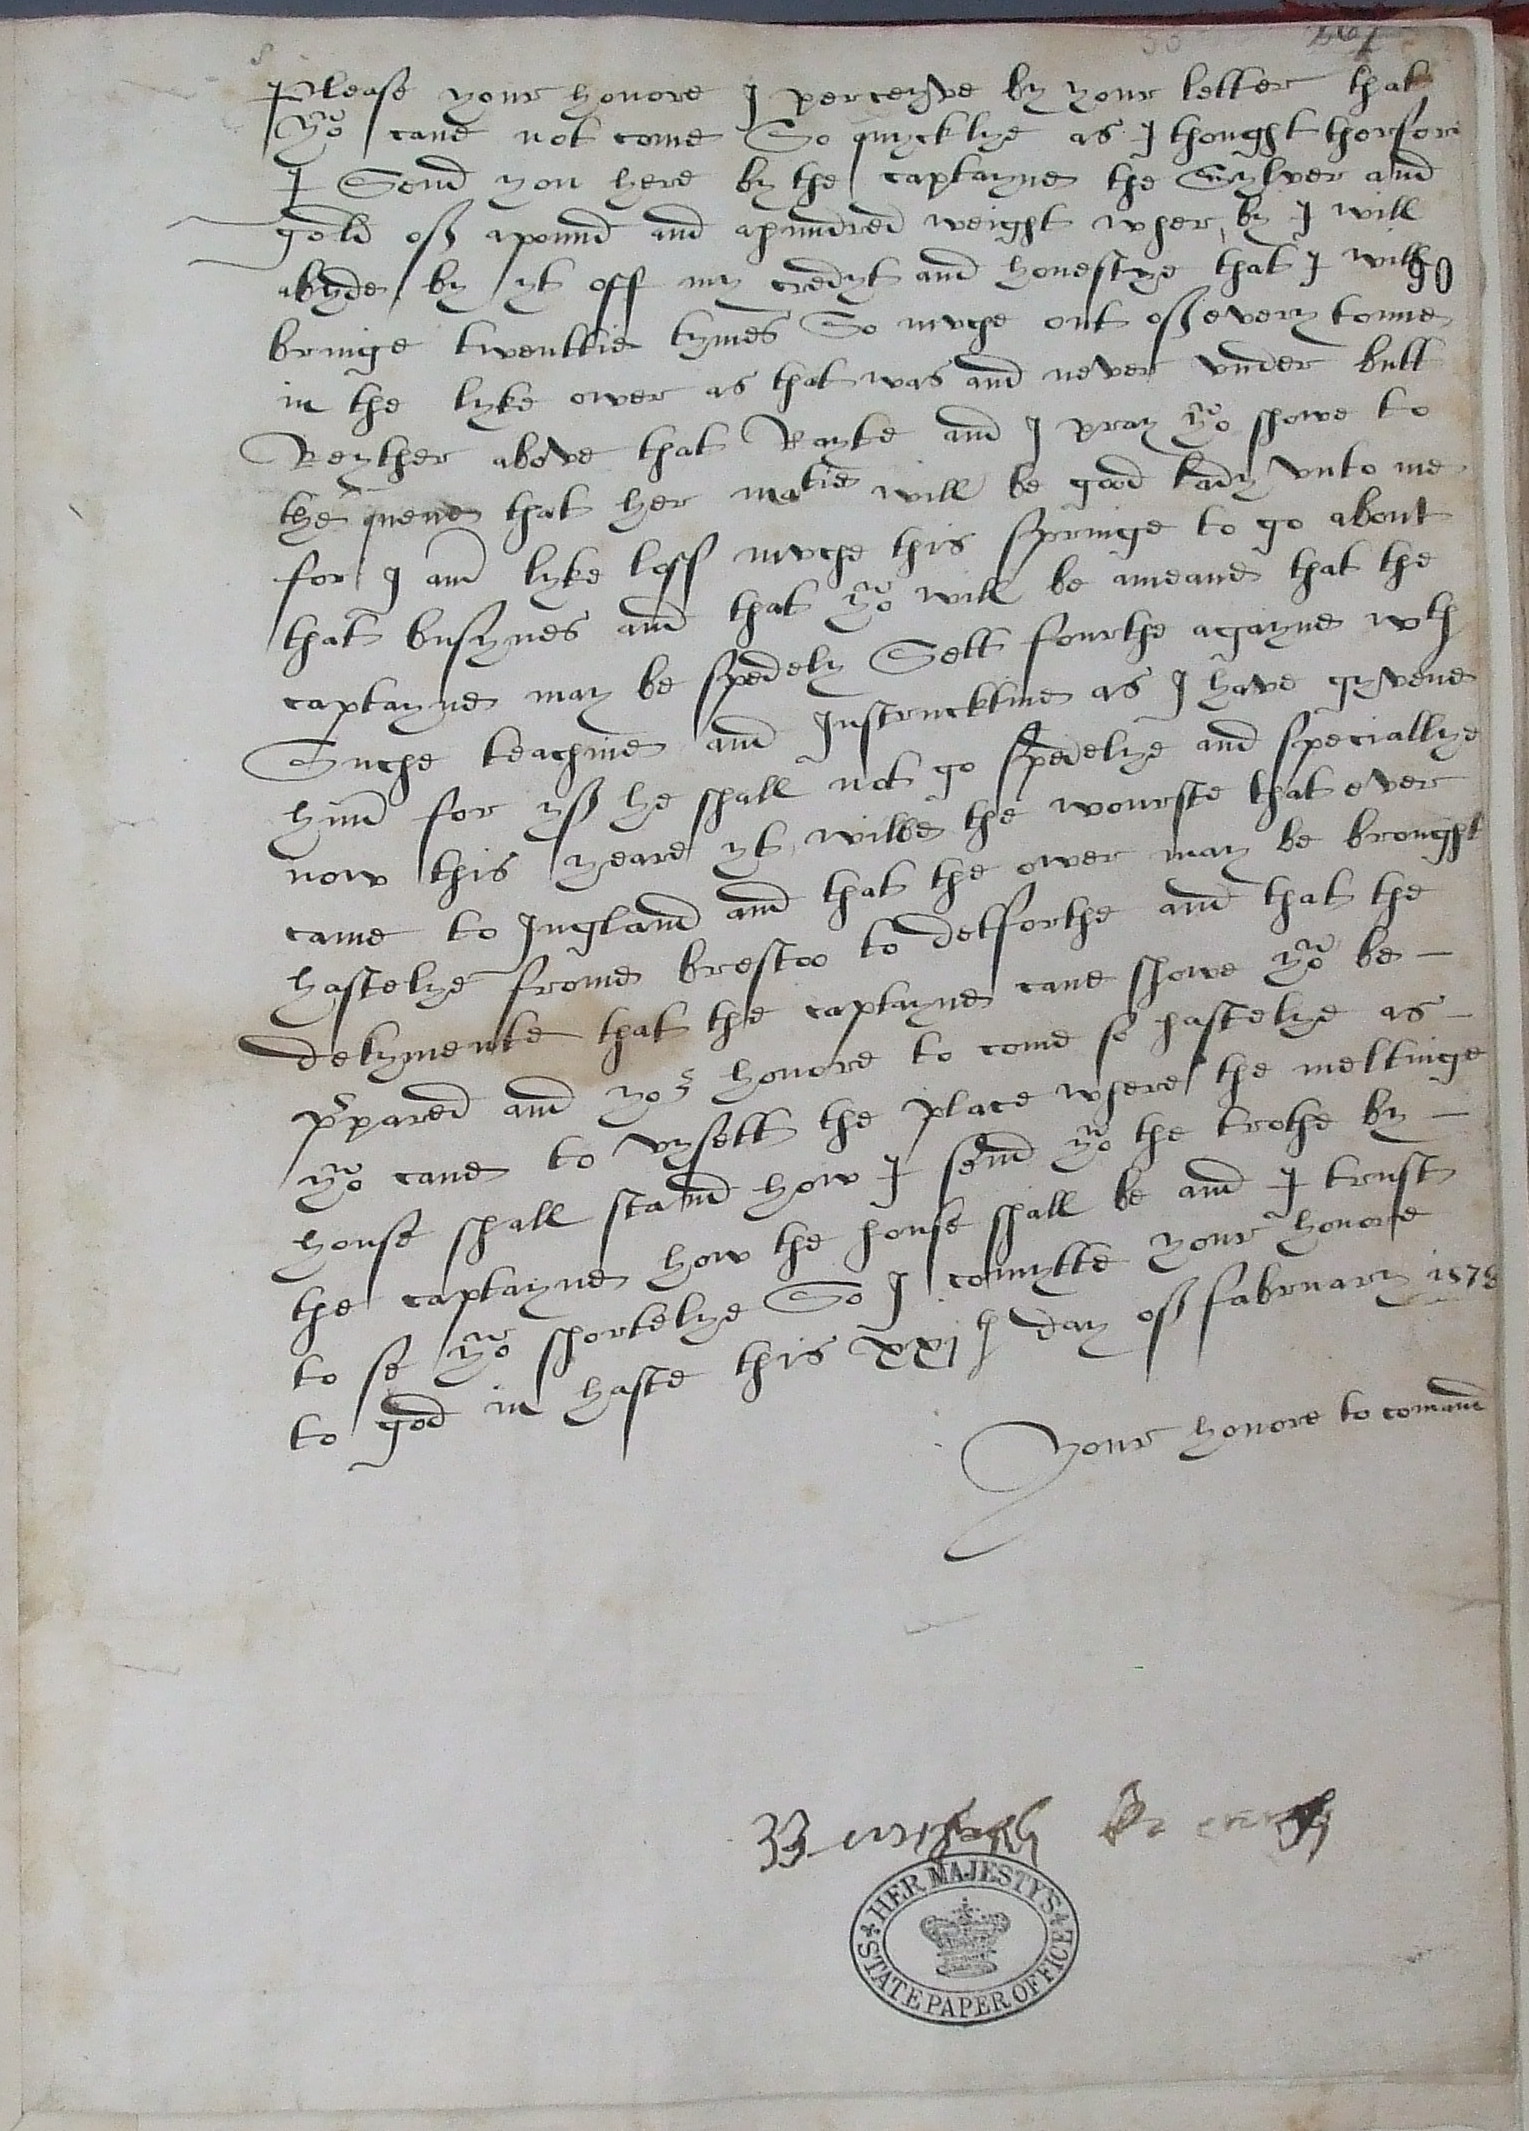 Please your honore I perceyve by your letter that
yo cane not come So quycklye as I thought therfore
I Send you here by the captayne the Sylver and
gold off apound and ahundred weight wher by I will
abyde by yt off my credyt and honestye that I will
90
bringe twenttie tymes So muche out off every tonne
in the lyke ower as that was and never under butt
Reyther above that Rayte and I pray yo showe to
the quene that her matie will be good Lady unto me
for I am lyke loss muche this springe to go about
that busynes and that yo will be ameane that the
captayne may be spedely Sett fourthe agayne wth
Suche teachine and Instrucktine as I have gyvene
him for yff he shall not go spedelye and speciallye
now this yeare yt wilbe the wourste that ever
came to Ingland and that the ower may be brought
hastelye frome brestoo to detforthe and that the
delymente that the captayne cane showe yo be –
prpared and yor honore to come so hastelye as –
yo cane to vysett the place where the meltinge
house shall stand how I send yo the trothe by –
the captayne how the house shall be and I trust
to se yo shortelye So I comytte your honore
to god in haste this xxjth day off fabruary 1578
Your honore to comand
HER MAJESTY'S
STATE PAPER OFFICE